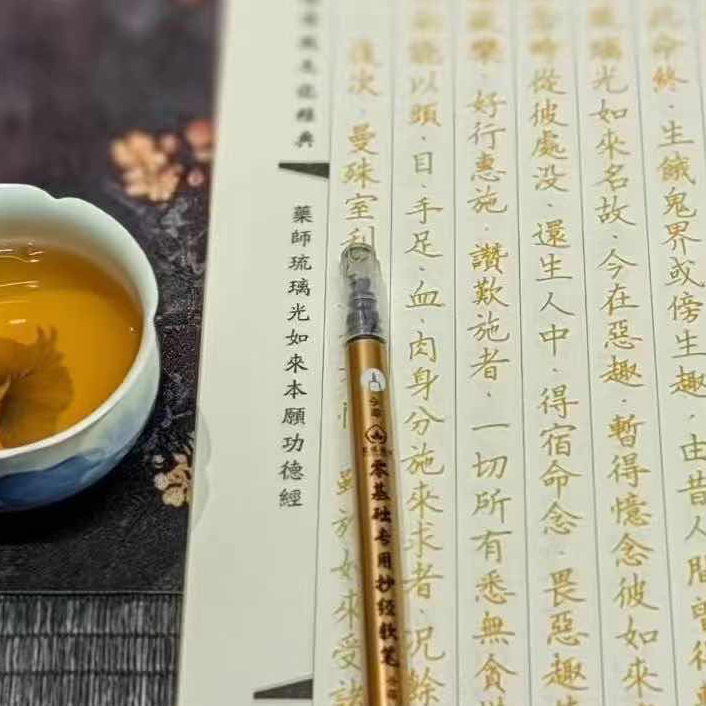 命終·生餓鬼界或傍生趣·由昔人間曾得
璃光如來名故·今在惡趣·暫得憶念彼如來
時從彼處没·還生人中·得宿命念·畏惡趣
樂·好行惠施·讚歎施者·一切所有悉無貪
能以頭·目·手足·血·肉身分施來求者·況餘
復次·曼殊室利 雖於如來受諸
藥師琉璃光如來本願功德經
經典
零基础专用抄经软笔